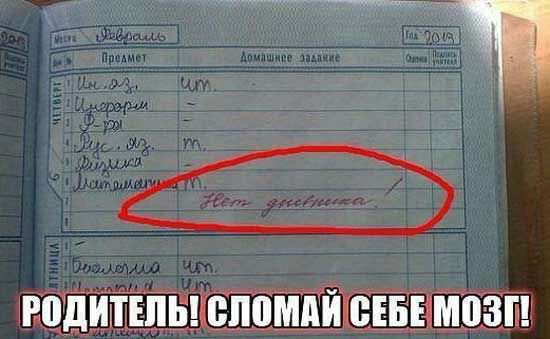 Месяц Февраль Год 2019
Дни № Предмет Домашнее задание Оценка Подпись учителя
ЧЕТВЕРГ
1 Ин. яз. чт.
2 Информ -
3 Ф-ра -
4 Рус. яз. т.
5 Физика -
6 Математика т.
7 Нет дневника!
8
6
ПЯТНИЦА
1 -
2 Биология чт.
3 История чт.
РОДИТЕЛЬ! СЛОМАЙ СЕБЕ МОЗГ!